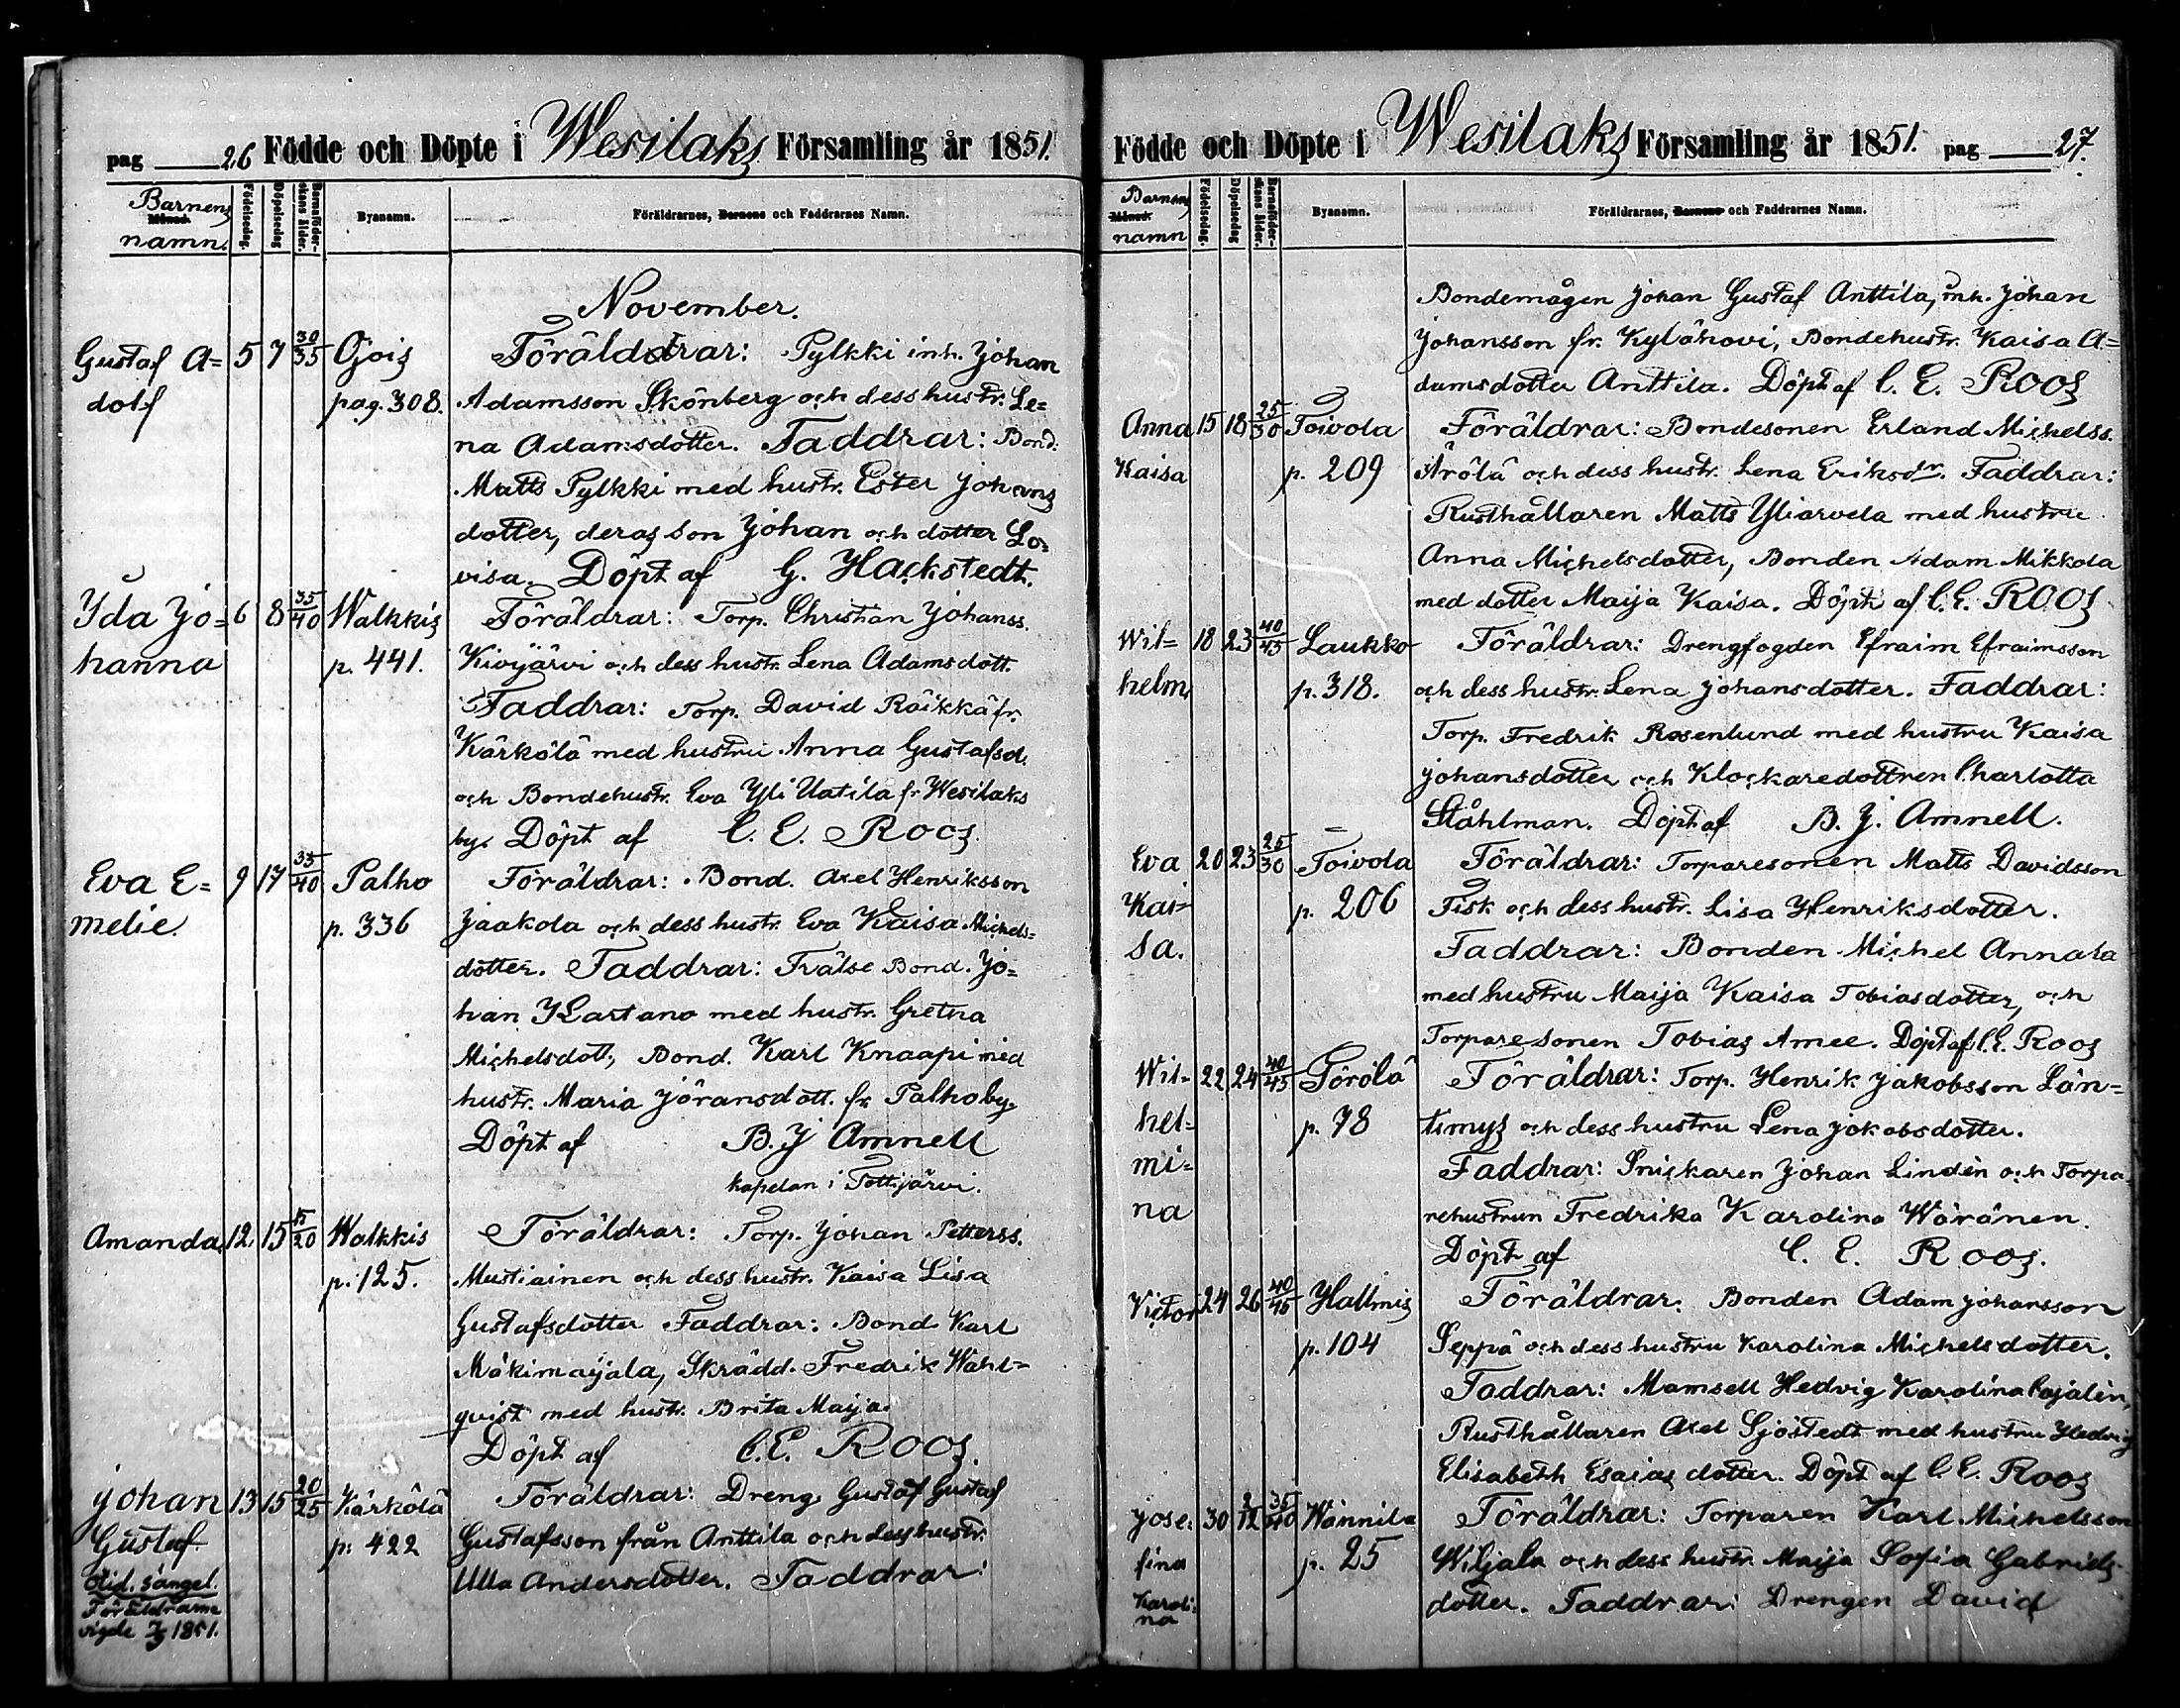 pag 26 Födde och Döpte i Wesilaks Församling år 1851.
Barnens namn. Månad. Födelsedag. Döpelsedag Barnaföderskans ålder. Byanamn. Föräldrarnes, Barnens och Faddrarnes Namn.
November.
Gustaf A= 5 7 30/35 Ojois Föräldrar: Pylkki inh. Johan
dolf pag. 308. Adamsson Skönberg och dess hustr. Le=
na Adamsdotter. Faddrar: Bond.
Matts Pylkki med hustr. Ester Johans
dotter, deras son Johan och dotter Lo=
visa. Döpt af G. Hackstedt.
Yda Jo= 6 8 35/40 Walkkis Föräldrar: Torp. Christian Johanss.
hanna p. 441. Kivijärvi och dess hustr. Lena Adamsdott.
Faddrar: Torp. David Räikkä fr.
Kärkölä med hustru Anna Gustafsd.
och Bondehustr. Eva Yli Uotila fr. Wesilaks
by. Döpt af C. E. Roos.
Eva E= 9 17 35/40 Palho Föräldrar: Bond. Axel Henriksson
melie. p. 336 Jaakola och dess hustr. Eva Kaisa Michels=
dotter. Faddrar: Frälse Bond. Jo=
han Kartano med hustr. Gretha
Michelsdott., Bond. Karl Knaapi med
hustr. Maria Jöransdott. fr. Palho by.
Döpt af B. J Amnell
kapelan i Tottijärvi.
Amanda 12 15 15/20 Walkkis Föräldrar: Torp. Johan Petterss.
p. 125. Mustiainen och dess hustr. Kaisa Lisa
Gustafsdotter Faddrar: Bond Karl
Mäkimaijala, Skrädd. Fredrik Wahl=
qvist med hustr. Brita Maija.
Döpt af C. E. Roos.
Johan 13 15 20/25 Kärkölä Föräldrar: Dreng. Gustaf Gustaf
Gustaf p. 422 Gustafsson från Anttila och dess hustr.
Oid. sängel. Ulla Andersdotter. Faddrar:
Föräldrarne
vigde 1851.
Födde och Döpte i Wesilaks Församling år 1851. pag 27.
Barnens namn Månad. Födelsedag. Döpelsedag Barnaföderskans ålder. Byanamn. Föräldrarnes, Barnens och Faddrarnes Namn.
Bondemågen Johan Gustaf Anttila, inh. Johan
Johansson fr. Kylähovi, Bondehustr. Kaisa A=
damsdotter Anttila. Döpt af C. E. Roos
Anna 15 18 25/30 Toivola Föräldrar: Bondesonen Erland Michelss.
Kaisa p. 209 Arölä och dess hustr. Lena Eriksdr. Faddrar:
Rusthållaren Matts Yliarvela med hustru
Anna Michelsdotter, Bonden Adam Mikkola
med dotter Maija Kaisa. Döpt af C. E. Roos
Wil= 18 23 40/45 Laukko Föräldrar: Drengfogden Efraim Efraimsson
helm p. 318. och dess hustr. Lena Johansdotter. Faddrar:
Torp. Fredrik Rosenlund med hustru Kaisa
Johansdotter och Klockaredottren Charlotta
Ståhlman. Döpt af B. J. Amnell.
Eva 20 23 25/30 Toivola Föräldrar: Torparesonen Matts Davidsson
Kai= p. 206 Fisk och dess hustr. Lisa Henriksdotter.
sa. Faddrar: Bonden Michel Annala
med hustru Maija Kaisa Tobiasdotter, och
Torparesonen Tobias Amee. Döpt af C. E. Roos
Wil= 22 24 40/45 Pörölä Föräldrar: Torp. Henrik Jakobsson Län=
hel= p. 78 timys och dess hustru Lena Jakobsdotter.
mi= Faddrar: Snickaren Johan Lindén och Torpa
na rehustrun Fredrika Karolina Wäränen.
Döpt af C. E. Roos.
Victor 24 26 40/45 Hallmis Föräldrar. Bonden Adam Johansson
p. 104 Seppä och dess hustru Karolina Michelsdotter.
Faddrar: Mamsell Hedvig Karolina Cajalén,
Rusthållaren Axel Sjöstedt med hustru Hedvig
Elisabeth Esaias dotter. Döpt af C. E. Roos
Jose- 30 2/12 35/40 Wännilä Föräldrar: Torparen Karl Michelsson
fina p. 25 Wiljala och dess hustr. Maija Sofia Gabriels
Karoli- dotter. Faddrar: Drengen David
na